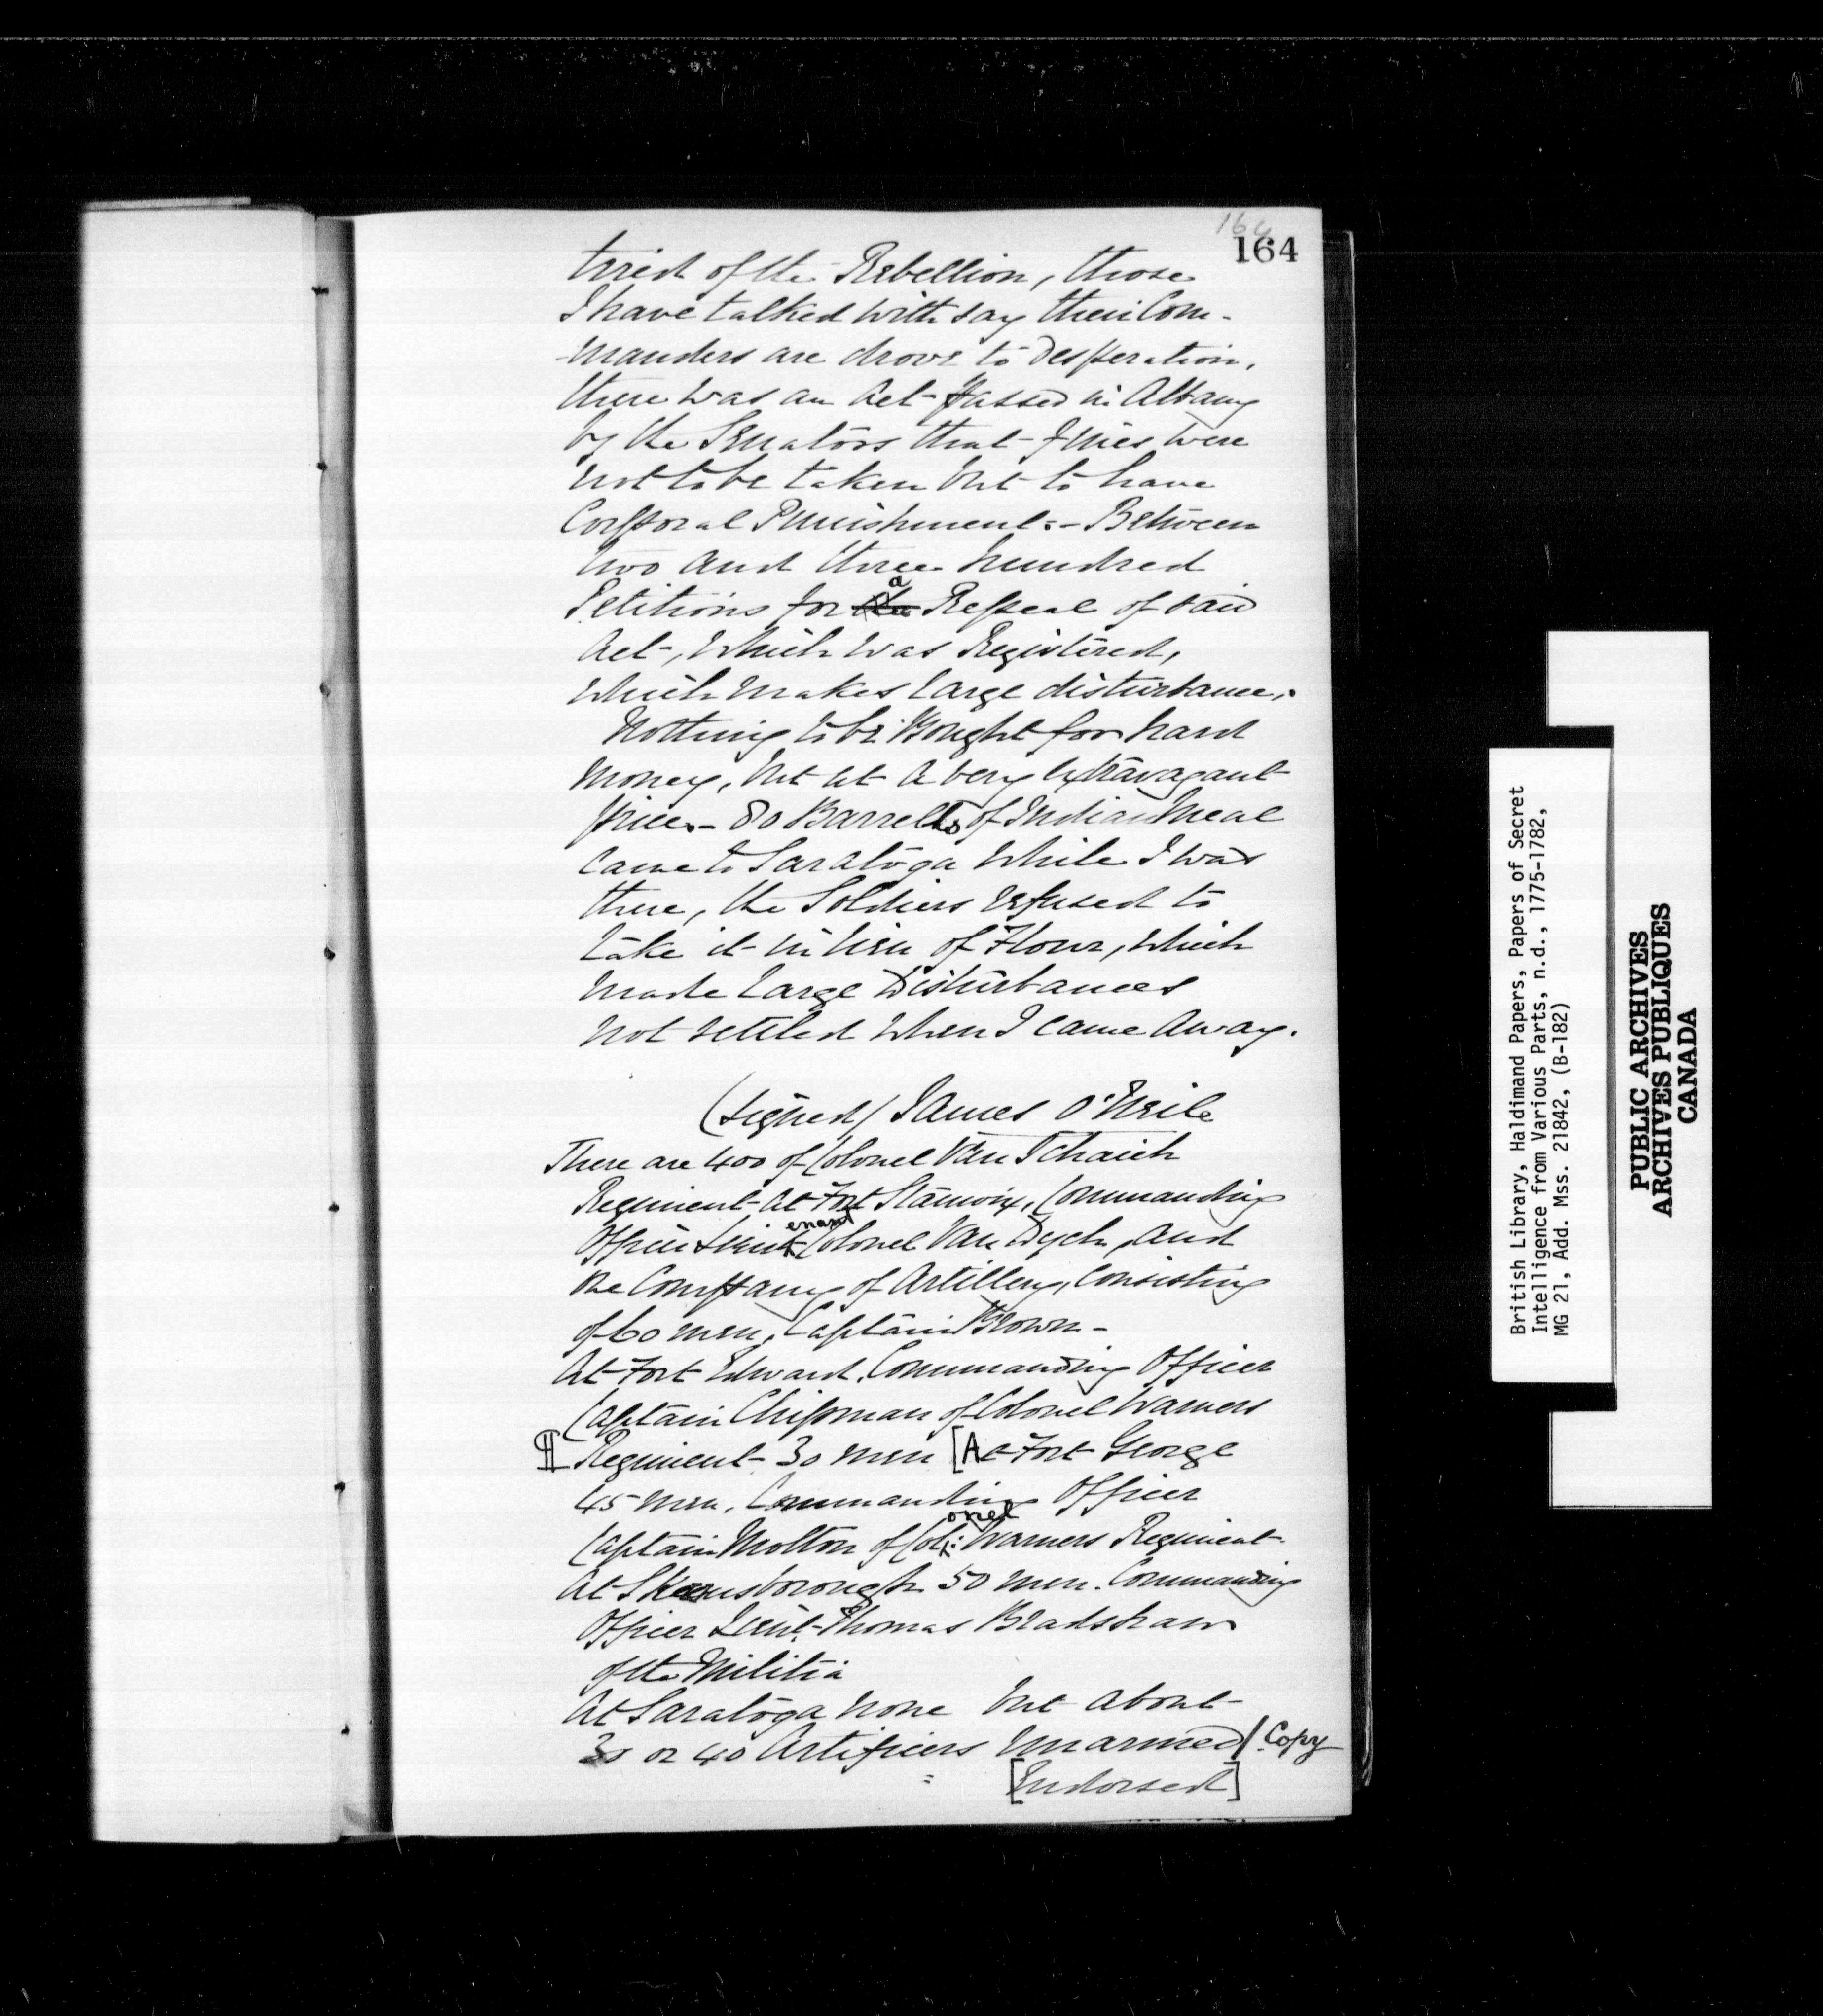 164
164
tired of the Rebellion, those
I have talked with say their Com-
-manders are drove to Desperation,
there was an Act passed in Albany
by the Senators that Fines were
not to be taken but to have
Corporal Punishment:- Between
two and three hundred
Petitions for the a Repeal of said
Act, which was Registered,
which makes large disturbance.
Nothing to be Bought for hard
money, but at a very extravagant
price.- 80 Barrells of Indian Meal
came to Saratoga while I was
there, the Soldiers refused to
take it in lieu of Flour, which
made large Disturbances
not settled when I came away.
(signed) James O'Neile
There are 400 of Colonel Van Schaick
Regiment at Fort Stanwix, Commanding
Officer Lieutenant Colonel Van Dyck, and
the Company of Artillery, consisting
of 60 men, Captain Brown-
At Fort Edward, Commanding Officer
Captain Chipman of Colonel Warners
Regiment 30 men [At Fort George
45 men, Commanding Officer
Captain Molton of Colonel Warners Regiment.
At Skeensborough 50 men. Commanding
Officer Lieut. Thomas Bradshaw
of the Militia
At Saratoga none but about
30 or 40 Artificers unarmed / Copy
[Endorsed]
British Library, Haldimand Papers, Papers of Secret
Intelligence from Various Parts, n.d., 1775-1782,
MG 21, Add. Mss. 21842, (B-182)
PUBLIC ARCHIVES
ARCHIVES PUBLIQUES
CANADA